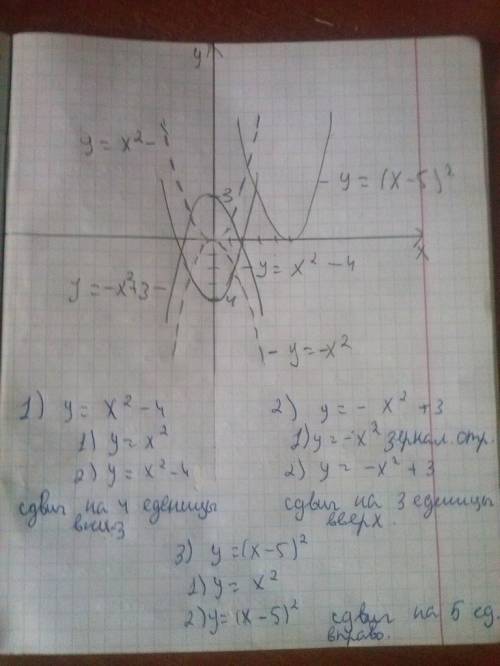 y
y = x² -
3
- y = (x-5)²
x
y = -x²+3 -
- y = x² - 4
4
- y = -x²
1) y = x² - 4
1) y = x²
2) y = x² - 4
сдвиг на 4 еденицы
вниз
2) y = - x² + 3
1) y = -x² зеркал. отр.
2) y = -x² + 3
сдвиг на 3 еденицы
вверх.
3) y = (x-5)²
1) y = x²
2) y = (x-5)² сдвиг на 5 ед.
вправо.